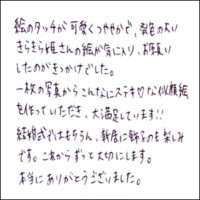 絵のタッチが可愛くつややかで、発色のよい
きらきら姫さんの絵が気に入り、お願い
したのがきっかけでした。
一枚の写真からこんなにステキな似顔絵
を作っていただき、大満足しています!!
結婚式ではもちろん、新居に飾るのも楽しみ
です。これからずっと大切にします。
本当にありがとうございました。